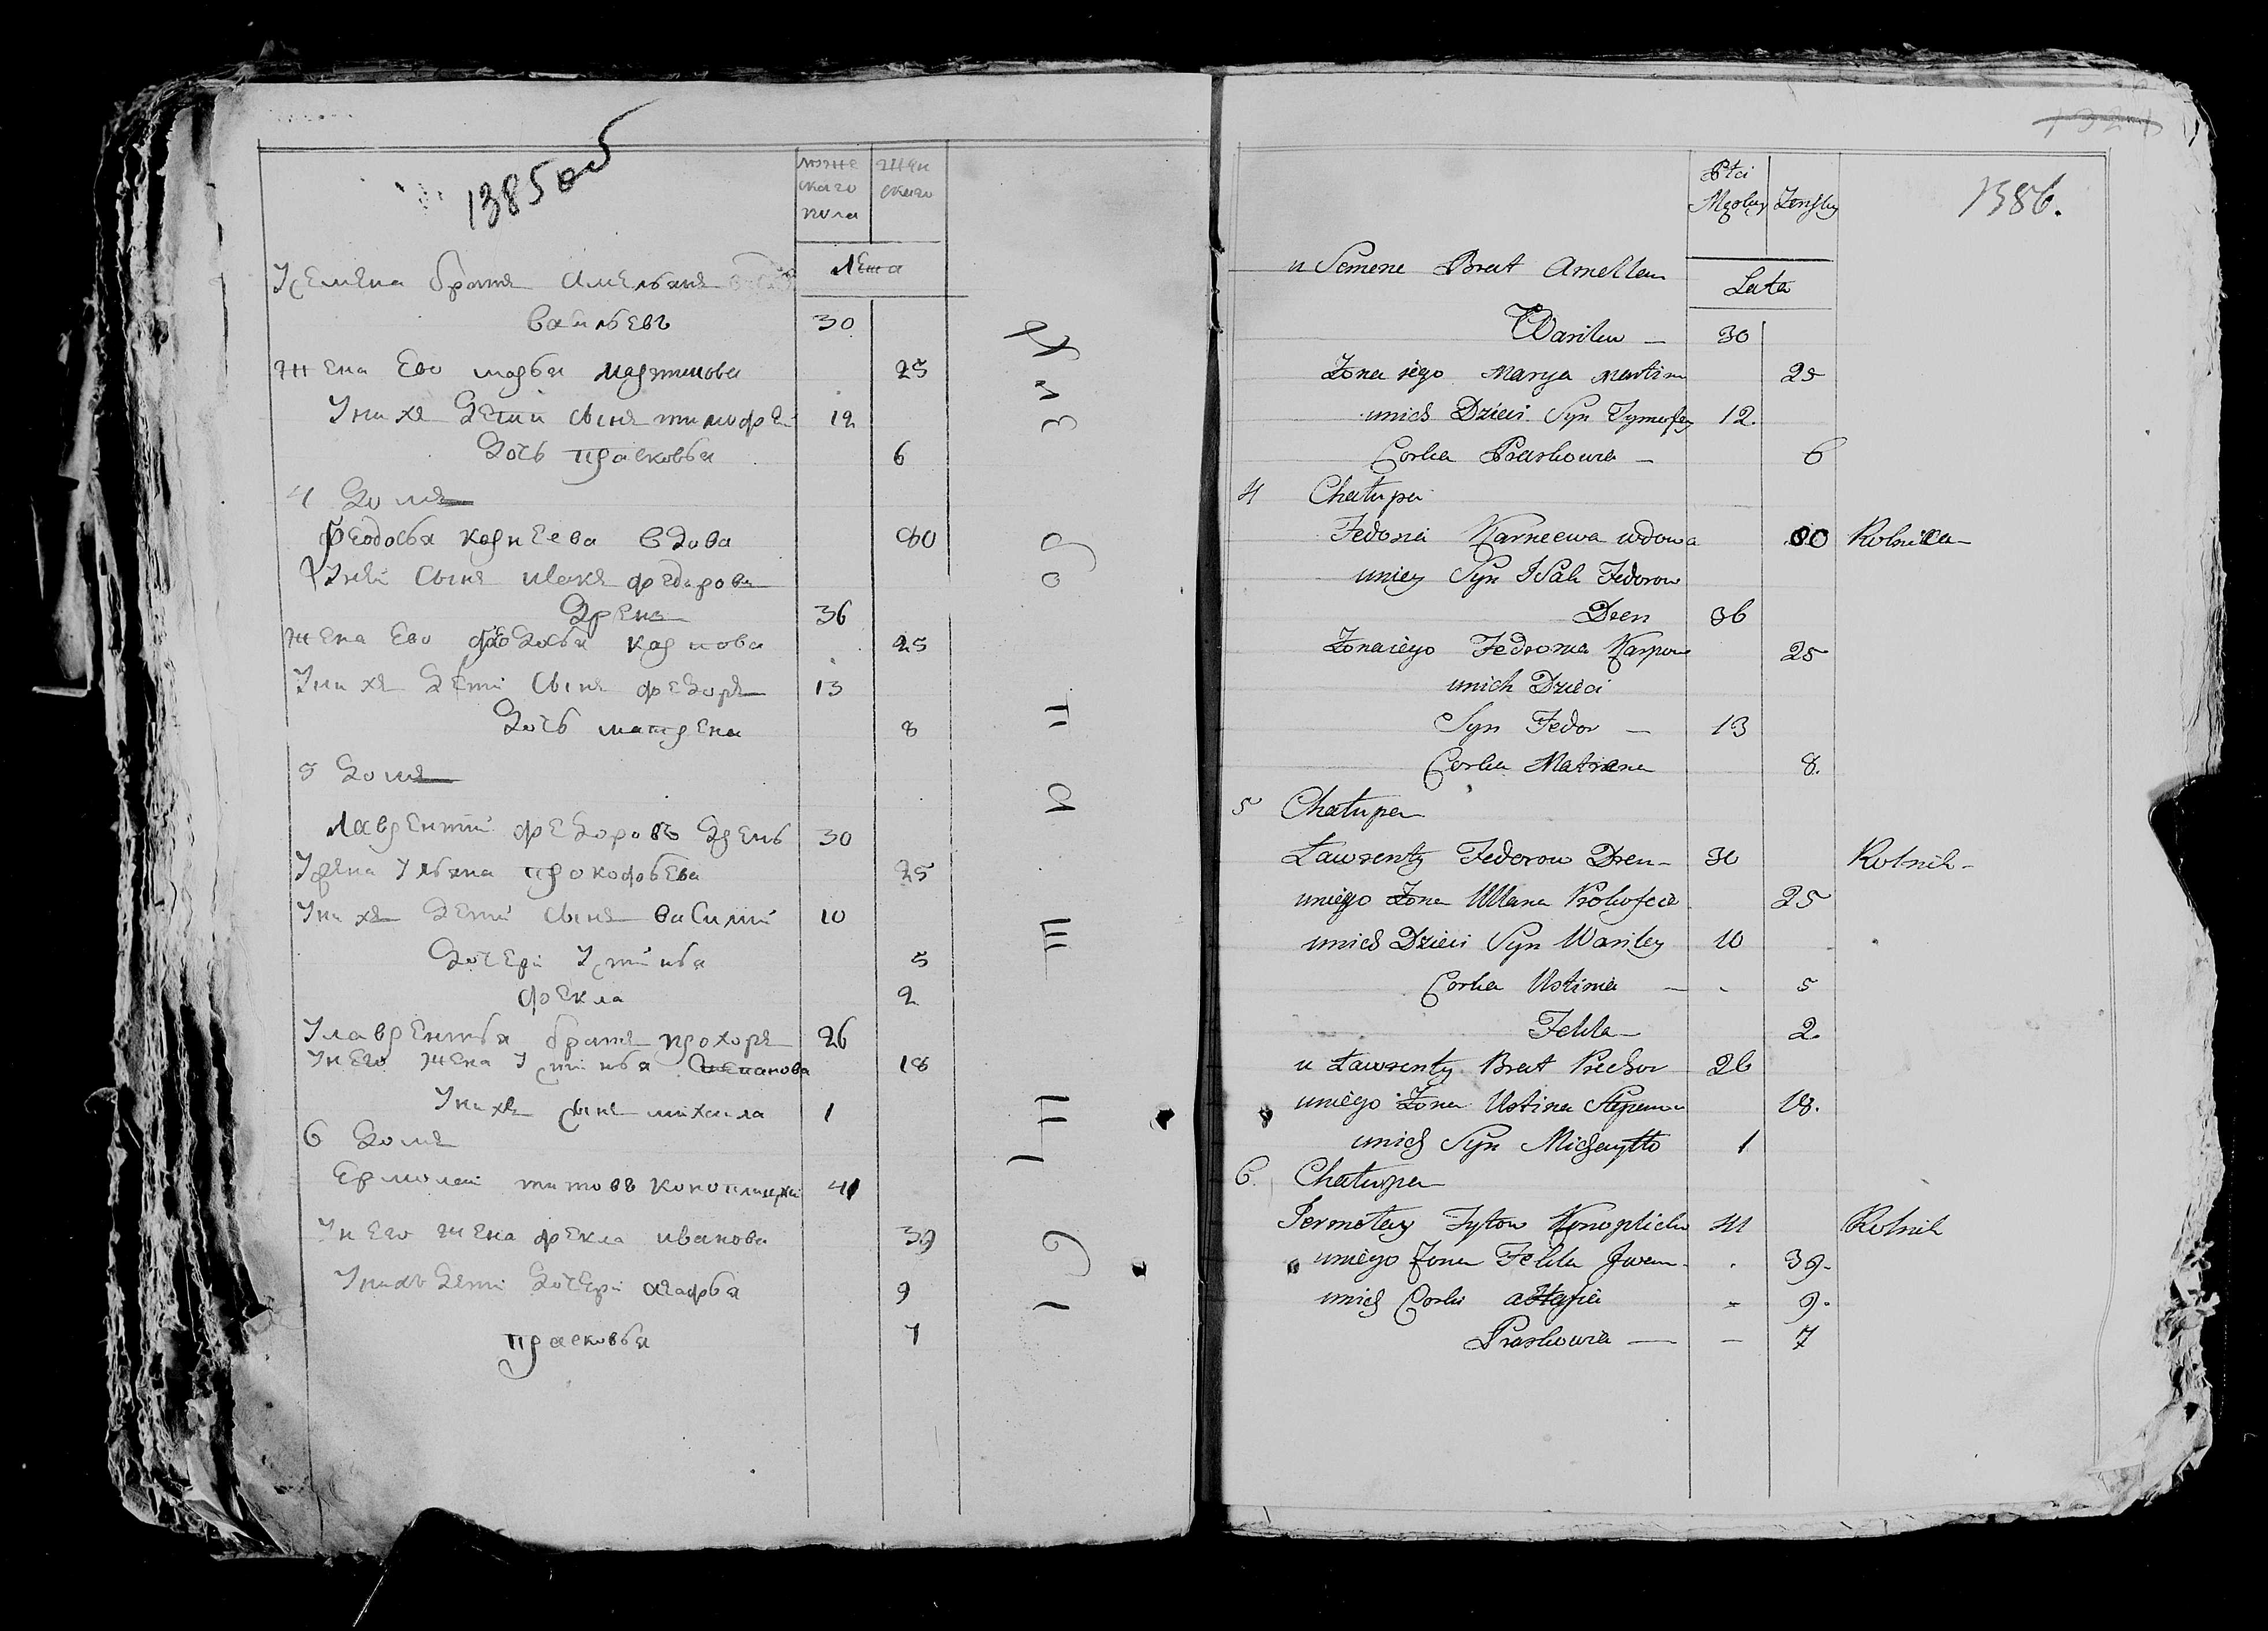 1385 об
муже
скаго
пола
жен
скаго
Лета
Усемена братъ Амельянъ
васильевъ 30
жена Ево марья мартинова 25
Унихъ дети сынъ тимофѣ 12
дочь прасковья 6
4 домъ
феодосья карнеева вдова 80
Унѣй сынъ исакъ федорова
дренъ 36
жена Ево федосья карпова 25
Унихъ дети сынъ федоръ 13
дочь матрена 8
5 домъ
лаврентий федоровъ дрень 30
Ульяна прокофьева 25
Унихъ дети сынъ василий 10
дочери Устинья 5
фекла 2
Улаврентья братъ прохоръ 26
Унего жена Устинья степанова 18
Унихъ сынъ михаила 1
6 домъ
Ермолай титовъ 41
Унего жена фекла иванова 39
Унихъ дети дочери агафья 9
прасковья 7
1386.
Płci
Męskiey Żenskiey
Lata
u Semene Brat Amellan
Wasilew — 30
Żona iego Marya Martin 25
unich Dzieci Syn Tymofey 12.
Corka Praskowia — 6
4 Chatupa
Fedosia Karneewa wdowa 80 Rolnica —
uniey Syn Isak Fedorow
Dren 36
Żona iego Fedosia Karpow 25
unich Dzieci
Syn Fedor — 13
Corka Matrena 8.
5 Chatupa
Ławrenty Fedorow Dren — 30 Rolnik —
uniego Żona Ullana Prokofeie 25
unich Dzieci Syn Wasiley 10
Corka Ustinia — - 5
Fekla — 2.
u Ławrenty Brat Prochor 26
uniego Żona Ustina Stepanow 18.
unich Syn Michayło 1
6. Chatupa
Jermołay Tytow Konoplicki 41 Rolnik
uniego Żona Fekla Iwan. . 39.
unich Corki Agafia - 9.
Praskowia — - 7